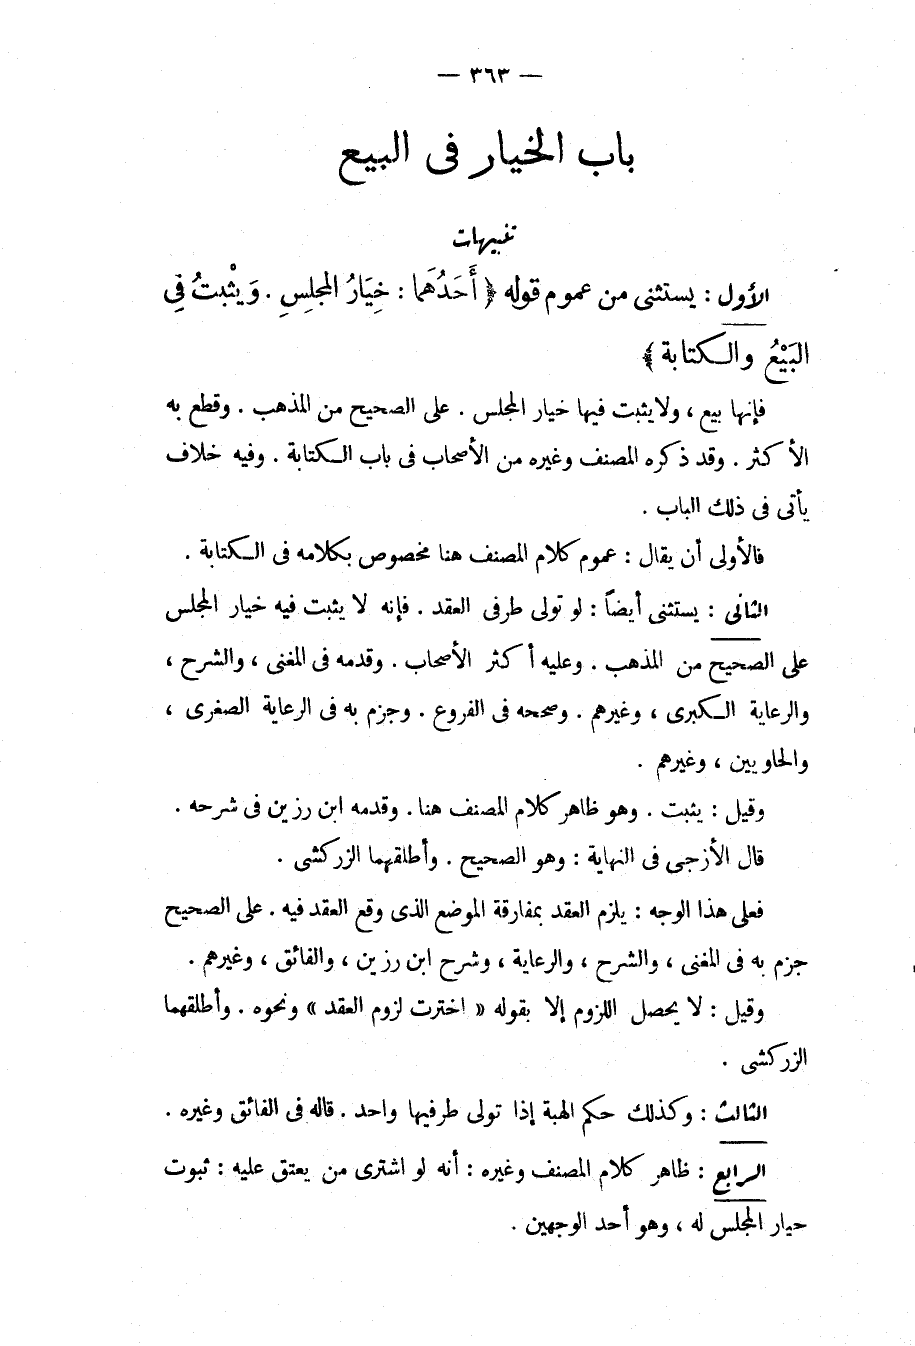 — ٣٦٣ —
باب الخيار فى البيع
تنبيهات
الأول : يستثنى من عموم قوله ﴿ أَحَدُهُمَا : خِيَارُ المجلِسِ . وَيَثْبتُ فِي
البَيْعُ والكتابة ﴾
فإنها بيع ، ولا يثبت فيها خيار المجلس . على الصحيح من المذهب . وقطع به
الأكثر . وقد ذكره المصنف وغيره من الأصحاب فى باب الكتابة . وفيه خلاف
يأتى فى ذلك الباب .
فالأولى أن يقال : عموم كلام المصنف هنا مخصوص بكلامه فى الكتابة .
الثانى : يستثنى أيضاً : لو تولى طرفى العقد . فإنه لا يثبت فيه خيار المجلس
على الصحيح من المذهب . وعليه أكثر الأصحاب . وقدمه فى المغنى ، والشرح ،
والرعاية الكبرى ، وغيرهم . وصححه فى الفروع . وجزم به فى الرعاية الصغرى ،
والحاويين ، وغيرهم .
وقيل : يثبت . وهو ظاهر كلام المصنف هنا . وقدمه ابن رزين فى شرحه .
قال الأزجى فى النهاية : وهو الصحيح . وأطلقهما الزركشى .
فعلى هذا الوجه : يلزم العقد بمفارقة الموضع الذى وقع العقد فيه . على الصحيح
جزم به فى المغنى ، والشرح ، والرعاية ، وشرح ابن رزين ، والفائق ، وغيرهم .
وقيل : لا يحصل اللزوم إلا بقوله « اخترت لزوم العقد » ونحوه . وأطلقهما
الزركشى .
الثالث : وكذلك حكم الهبة إذا تولى طرفيها واحد . قاله فى الفائق وغيره .
الرابع : ظاهر كلام المصنف وغيره : أنه لو اشترى من يعتق عليه : ثبوت
حيار المجلس له ، وهو أحد الوجهين .